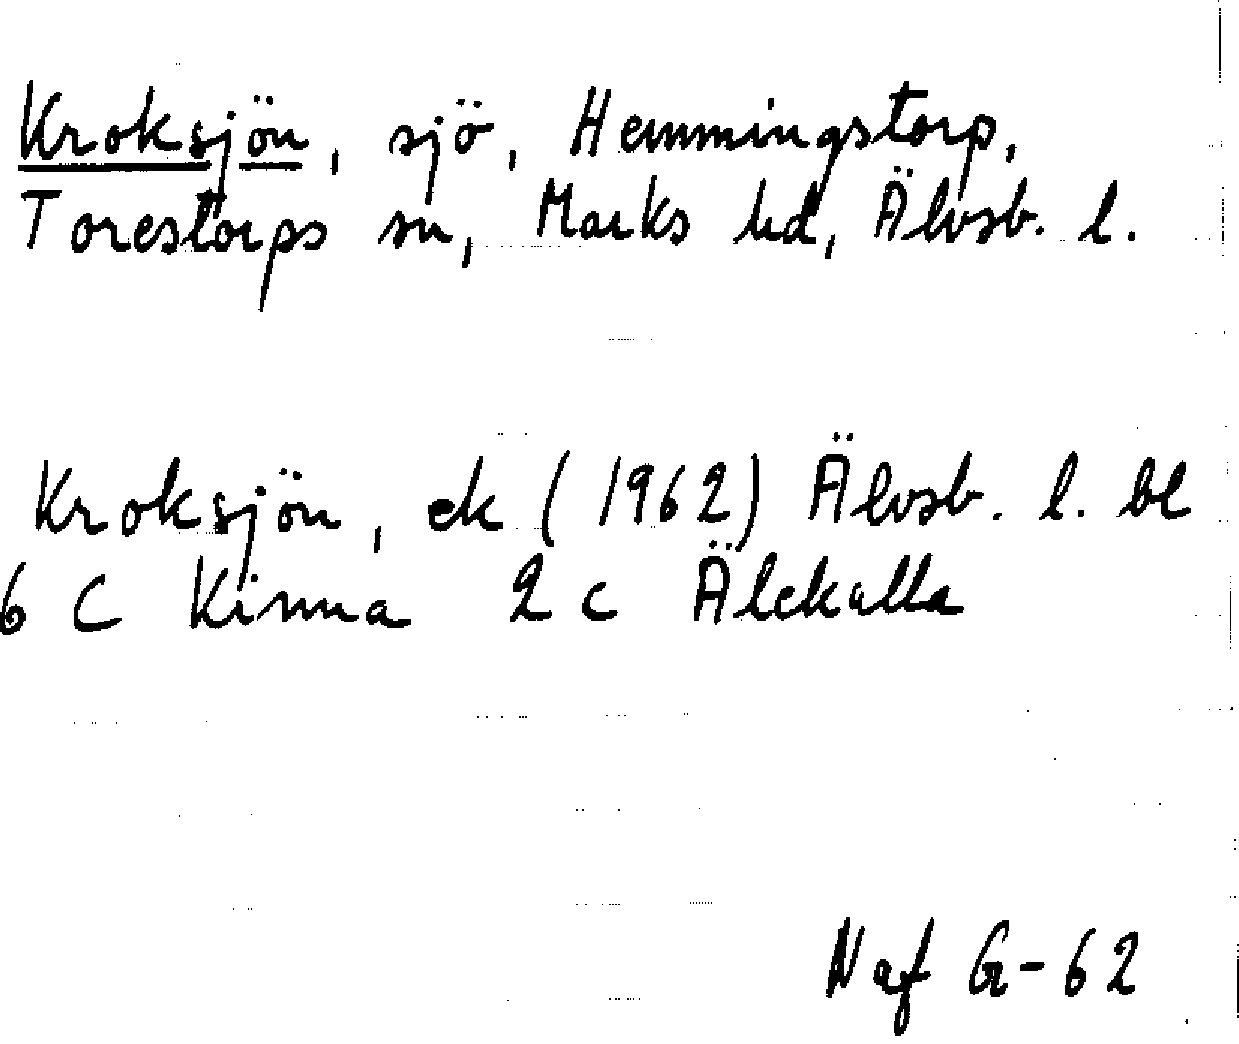 Kroksjön, sjö, Hemmingstorp,
Torestorps sn, Marks hd, Älvsb. l.
Kroksjön, ek (1962) Älvsb. l. bl
6 C Kinna 2 c Älekulla
Naf G-62